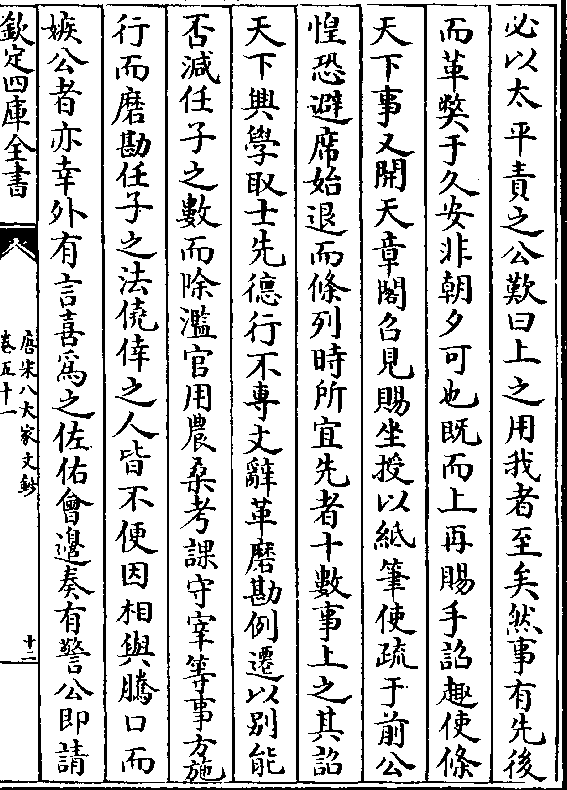 必以太平責之公歎曰上之用我者至矣然事有先後
而革獘于久安非朝夕可也既而上再賜手詔趣使條
天下事又開天章閣召見賜坐授以紙筆使疏于前公
惶恐避席始退而條列時所宜先者十數事上之其詔
天下興學取士先德行不專文辭革磨勘例遷以别能
否減任子之數而除濫官用農桑考課守宰等事方施
行而磨勘任子之法僥倖之人皆不便因相與騰口而
嫉公者亦幸外有言喜為之佐佑會邊奏有警公即請
欽定四庫全書
唐宋八大家文鈔
卷五十一
十二